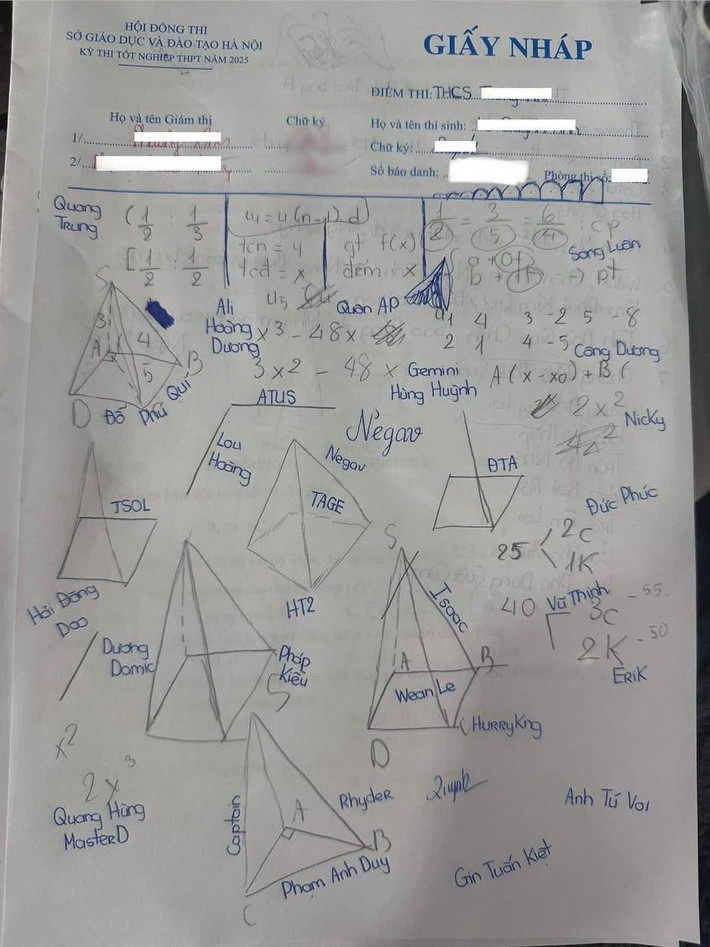 HỘI ĐỒNG THI
SỞ GIÁO DỤC VÀ ĐÀO TẠO HÀ NỘI
KỲ THI TỐT NGHIỆP THPT NĂM 2025
GIẤY NHÁP
ĐIỂM THI: THCS
Họ và tên Giám thị
Chữ ký
1/
2/
Họ và tên thí sinh:
Chữ ký:
Số báo danh:
Phòng thi số:
Quang
Trung
(1/2 : 1/3
[1/2 : 1/2
u1 = u(n-1) d
tcn = y
tcđ = x
gt f(x)
đếm x
u5
1/2 = 3/5 = 6/4 : cp
Song Luân
a + 0t
b + 1t → pt
S
3
A
4
5
B
D
Đỗ Phú Quí
Ali
Hoàng
Dương
Quân AP
x3 - 48x
3x2 - 48x
Gemini
Hùng Huỳnh
u1 4 3 -2 5 -8
2 1 4 -5
Công Dương
A(x-x0) + B(
2x2
Nicky
ATUS
Lou
Hoàng
Negav
Negav
TAGE
HT2
ĐTA
Đức Phúc
JSOL
Hải Đăng
Doo
25
2C
1K
40
Vũ Thịnh
3C - 55
2K - 50
ERIK
Dương
Domic
Pháp
Kiều
S
Isaac
A
B
Wean Le
D
C
HURRYKNG
x2
2x3
Quang Hùng
MasterD
S
Captain
A
B
C
Rhyder
Phạm Anh Duy
Anh Tú Voi
Gin Tuấn Kiệt